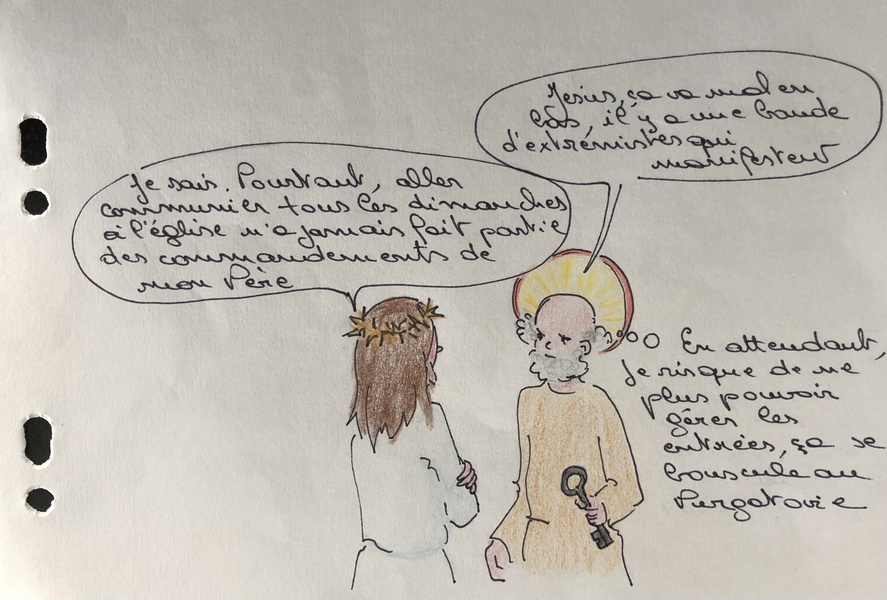 Jesus, ça va mal en
bas, il y a une bande
d'extrémistes qui
manifestent
Je sais. Pourtant, aller
communier tous les dimanches
à l'église n'a jamais fait partie
des commandements de
mon Père
En attendant,
je risque de ne
plus pouvoir
gérer les
entrées, ça se
bouscule au
Purgatoire